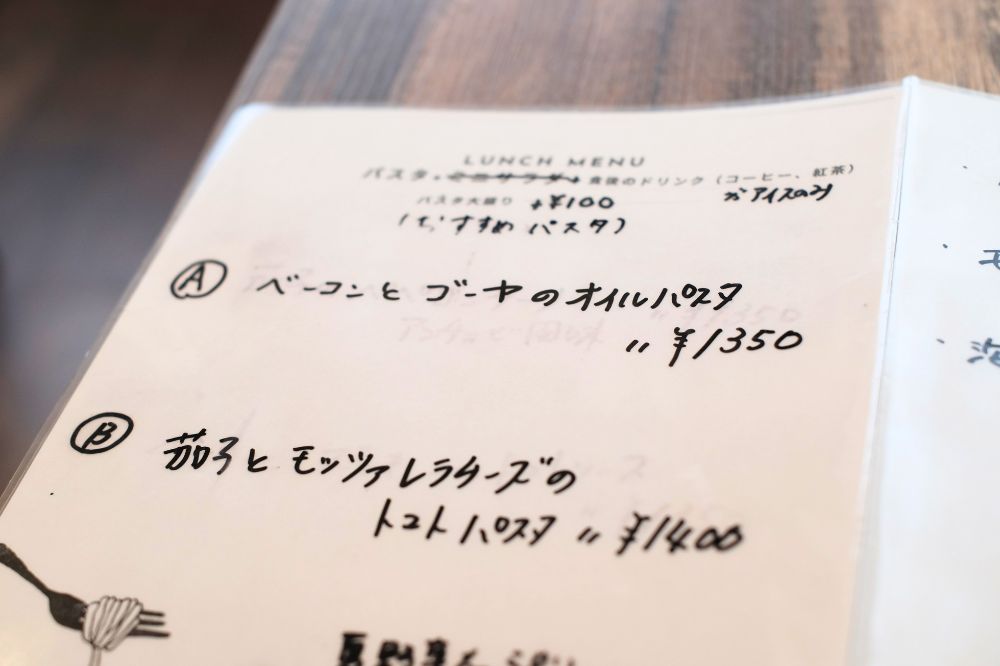 LUNCH MENU
パスタ・ミニサラダ・食後のドリンク(コーヒー、紅茶)
パスタ大盛り +¥100 アイスのみ
(おすすめパスタ)
Ⓐ ベーコンとゴーヤのオイルパスタ
〃 ¥1350
Ⓑ 茄子とモッツァレラチーズの
トマトパスタ 〃 ¥1400